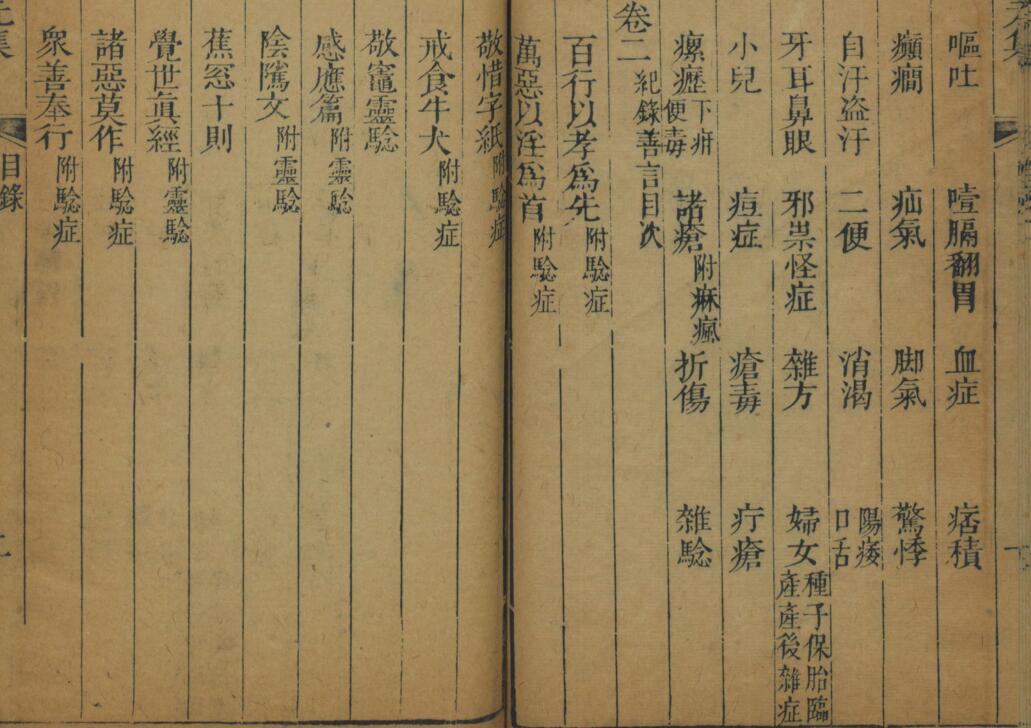 嘔吐 噎膈翻胃 血症 痞積
癲癎 疝氣 脚氣 驚悸
自汗盗汗 二便 消渴 陽痿 口舌
牙耳鼻眼 邪祟怪症 雜方 婦女 種子保胎臨產產後雜症
小兒 痘症 瘡毒 疔瘡
瘰癧 下疳 便毒 諸瘡 附麻瘋 折傷 雜騐
卷二 紀錄善言目次
百行以孝爲先 附騐症
萬惡以淫爲首 附騐症
敬惜字紙 附騐症
戒食牛犬 附騐症
敬竈靈騐
感應篇 附靈騐
陰隲文 附靈騐
蕉窓十則
覺世眞經 附靈騐
諸惡莫作 附騐症
衆善奉行 附騐症
集 目錄 二